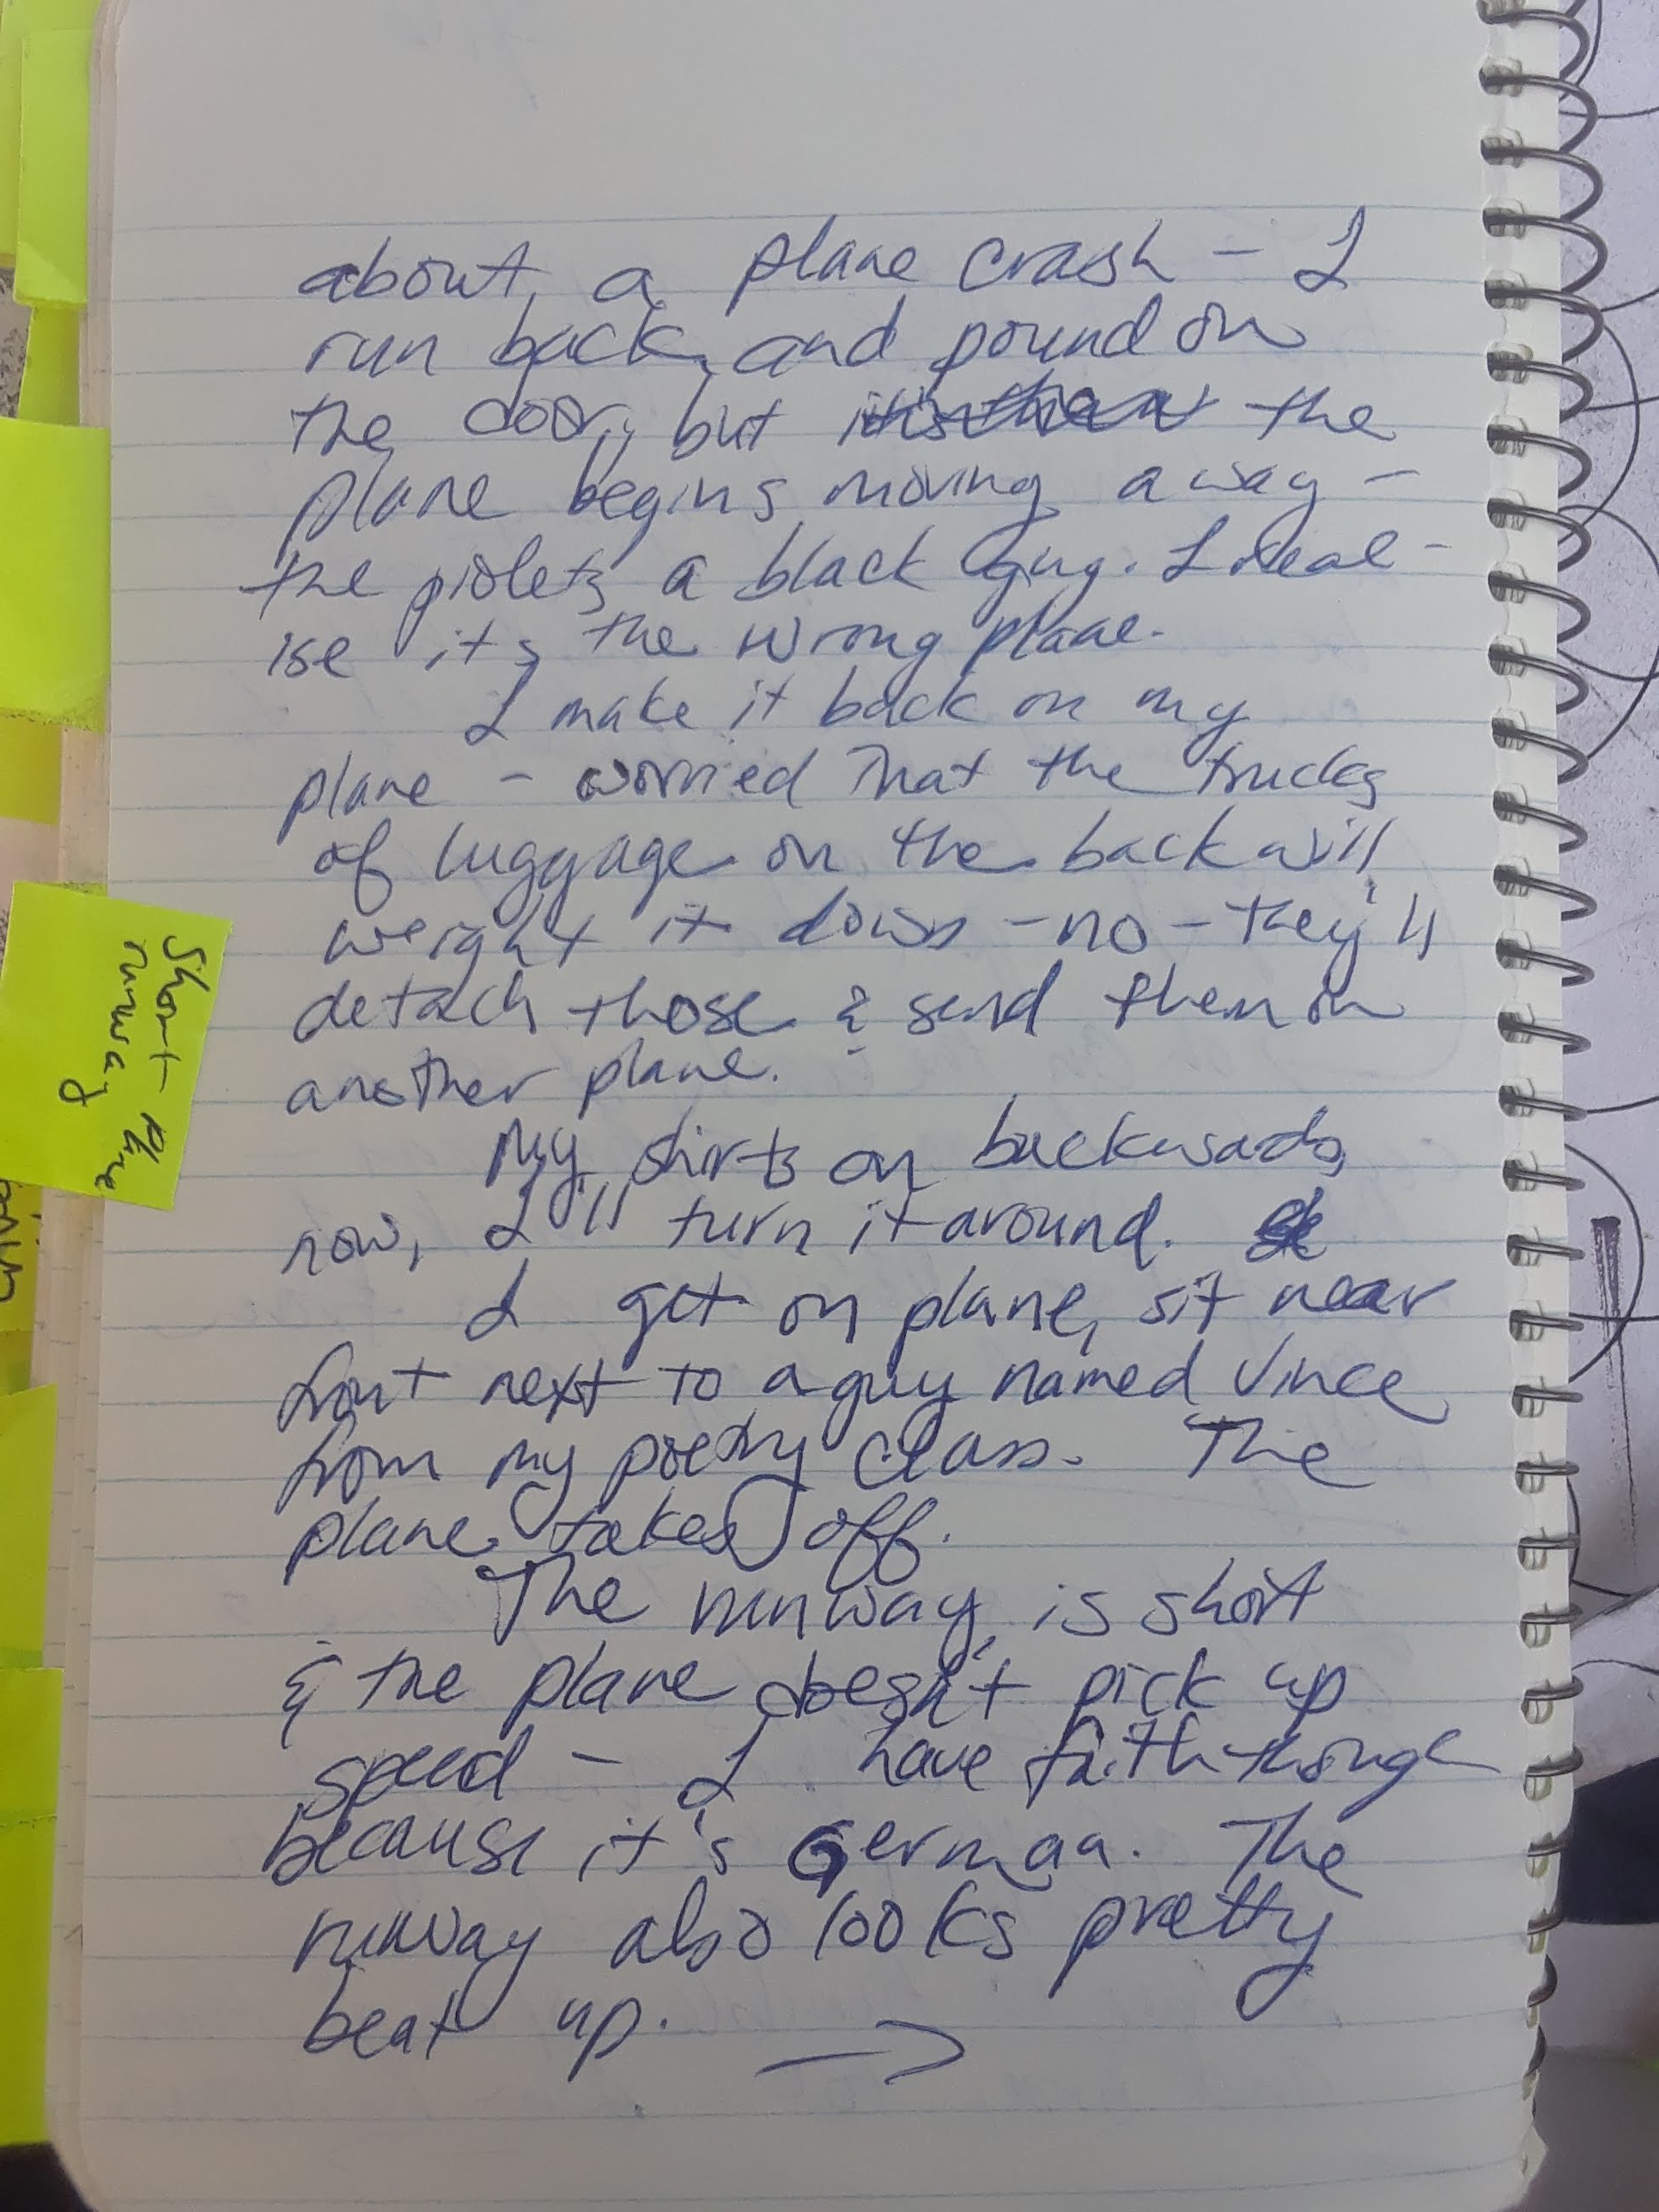 about a plane crash - I
run back and pound on
the door, but the
plane begins moving away -
the piolets a black guy. I real-
ise its the wrong plane.
I make it back on my
plane - worried that the trucks
of luggage on the back will
weight it down - no - they'll
detach those & send them on
another plane.
My shirts on backwards,
now, I'll turn it around.
I get on plane, sit near
front next to a guy named Vince
from my poetry class. The
plane takes off.
The runway is short
& the plane doesn't pick up
speed - I have faith though
because it's German. The
runway also looks pretty
beat up. →
Short Plane
runway